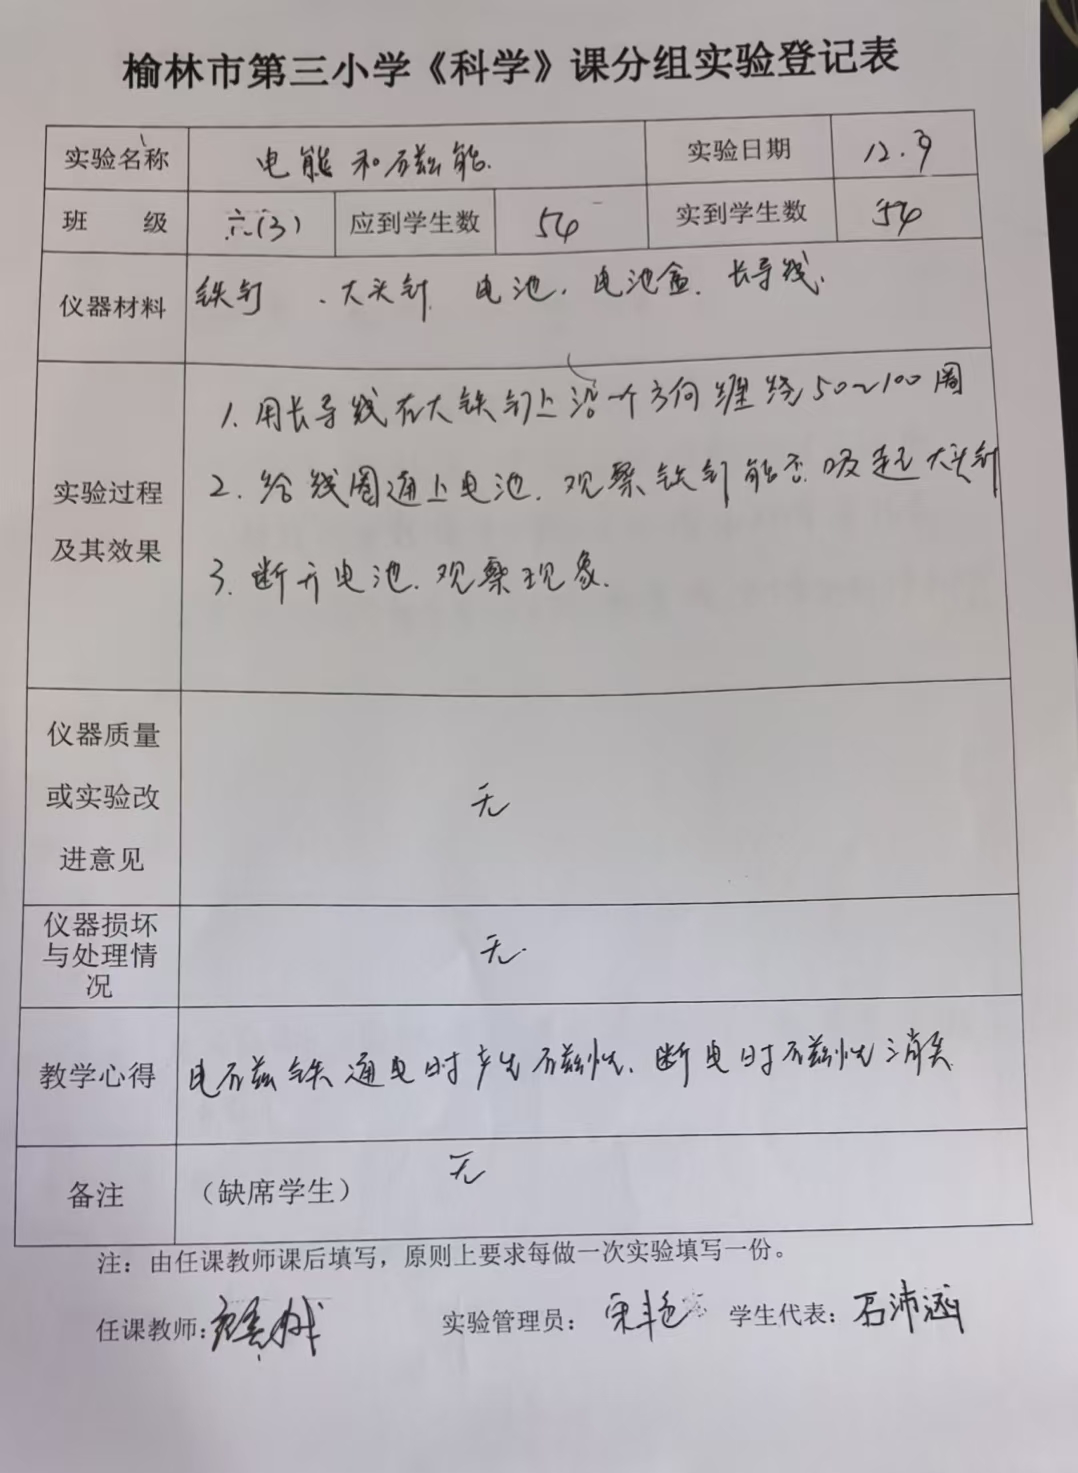 榆林市第三小学《科学》课分组实验登记表
实验名称 电能和磁能. 实验日期 12.9
班 级 六(3) 应到学生数 54 实到学生数 54
仪器材料 铁钉 、大头针 电池、电池盒、长导线.
实验过程
及其效果
1. 用长导线在大铁钉上沿一个方向缠绕50~100圈
2. 给线圈通上电池.观察铁钉能否吸起大头针
3. 断开电池.观察现象.
仪器质量
或实验改
进意见
无
仪器损坏
与处理情
况
无.
教学心得 电磁铁通电时产生磁性.断电时磁性消失
备注 (缺席学生) 无
注:由任课教师课后填写,原则上要求每做一次实验填写一份。
任课教师: 实验管理员: 宋艳 学生代表: 石沛涵